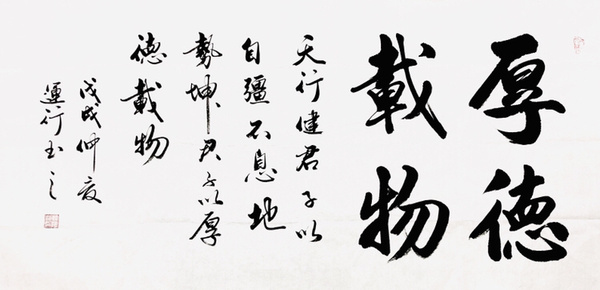 厚德
載物
天行健君子以
自疆不息地
勢坤君子以厚
德載物
戊戌仲夏
運行書之